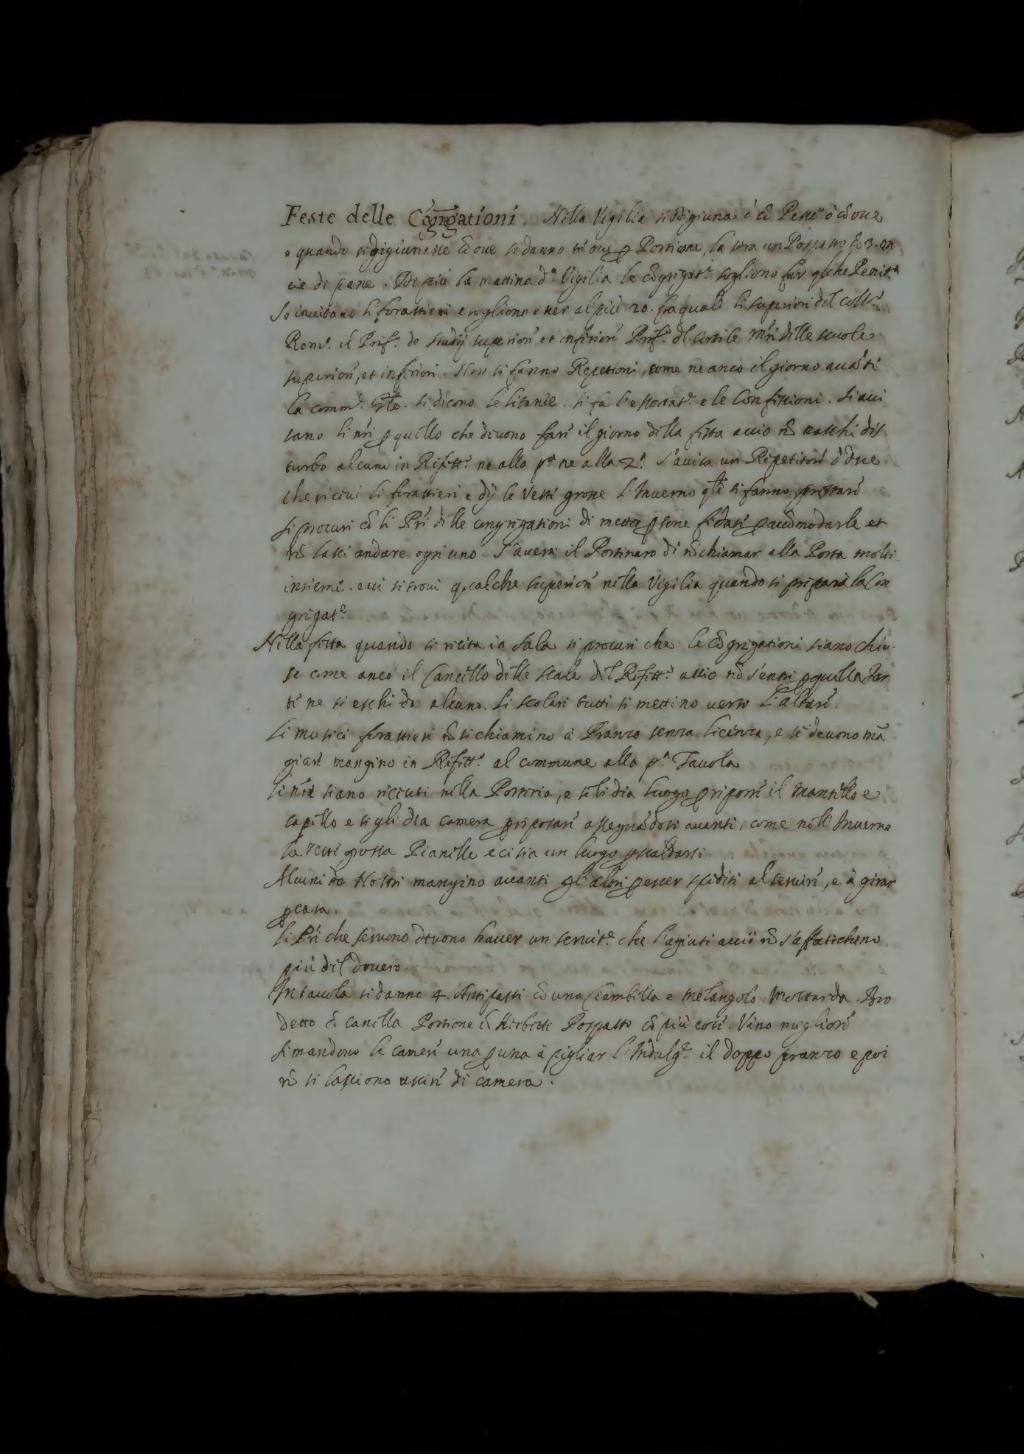 Feste delle Cõgregationi. Nella Vigilia si digiuna ò cõ Pesce ò cõ oue
e quando si digiunasse cõ oue si danno tre oua p Portione, la sera un Pospasto cõ 3. on
cie di pane. Di più la mattina dª Vigilia le cõgregatˢ sogliono far qualche Penitª
Se inuitano li forastieri e sogliono esser al più 20. fra quali li superiori del Collº
Romº. il Prefº. de studij superiori et inferiori Prefº. del cortile Mri delle scuole
superiori, et inferiori. Non si fanno Repetioni, come ne anco il giorno auãti
la commˢ. gñle. si dicono le litanie. si fa l'essortatˢ e le Confessioni. Si aui
sano li nri p quello che deuono fare il giorno della festa accio nõ naschi dis
turbo alcuno in Refettº ne alla pª ne alla 2ª. S'auisa un Repetitore ò due
che riceui li forastieri e dij le Vesti grosse l'Inuerno qli si fanno prestare
Si procuri cõ li Pri delle congregationi di metter psone fidate p accõmodarle et
nõ lassi andare ogni uno. S'auerta il Portinaro di nõ chiamar alla Porta molti
insieme. e ui si troui qualche superiore nella Vigilia quando si prepara la Con
gregatˢ.
Nella festa quando si recita in sala si procuri che le cõgregationi siano chiu
se come anco il Cancello delle scale del Refettº accio nõ s'entri p quella Par
te ne si eschi da alcuno. Li scolari tutti si mettino uerso l'altare.
Li musici forastieri nõ si chiamino à Pranzo senza licenza, e se deuono mã
giare mangino in Refettº al commune alla pª Tauola
siano riceuti nella Porteria, e se li dia luogo p riporre il Mantello e
capello e se gli dia camera p riposare assegnãdosi auanti, come nell'Inuerno
la Veste grossa Pianelle e ci sia un luogo p scaldarsi
Alcuni de Nostri mangino auanti gli altri p esser spediti al seruire, e à girar
p casa.
Li Pri che seruono deuono hauer un seruitˢ che l'agiuti accio nõ s'affatichino
più del douero
In tauola si danno 4. Antipasti cõ una Ciambella e melangolo Mostarda Bro
detto cõ canella Portione cõ Herbette Pospasto cõ più cose. Vino megliore
Si mandono le camere una p una à pigliar l'Indulgˢ. il doppo pranzo e poi
nõ si lassiono uscire di camera.